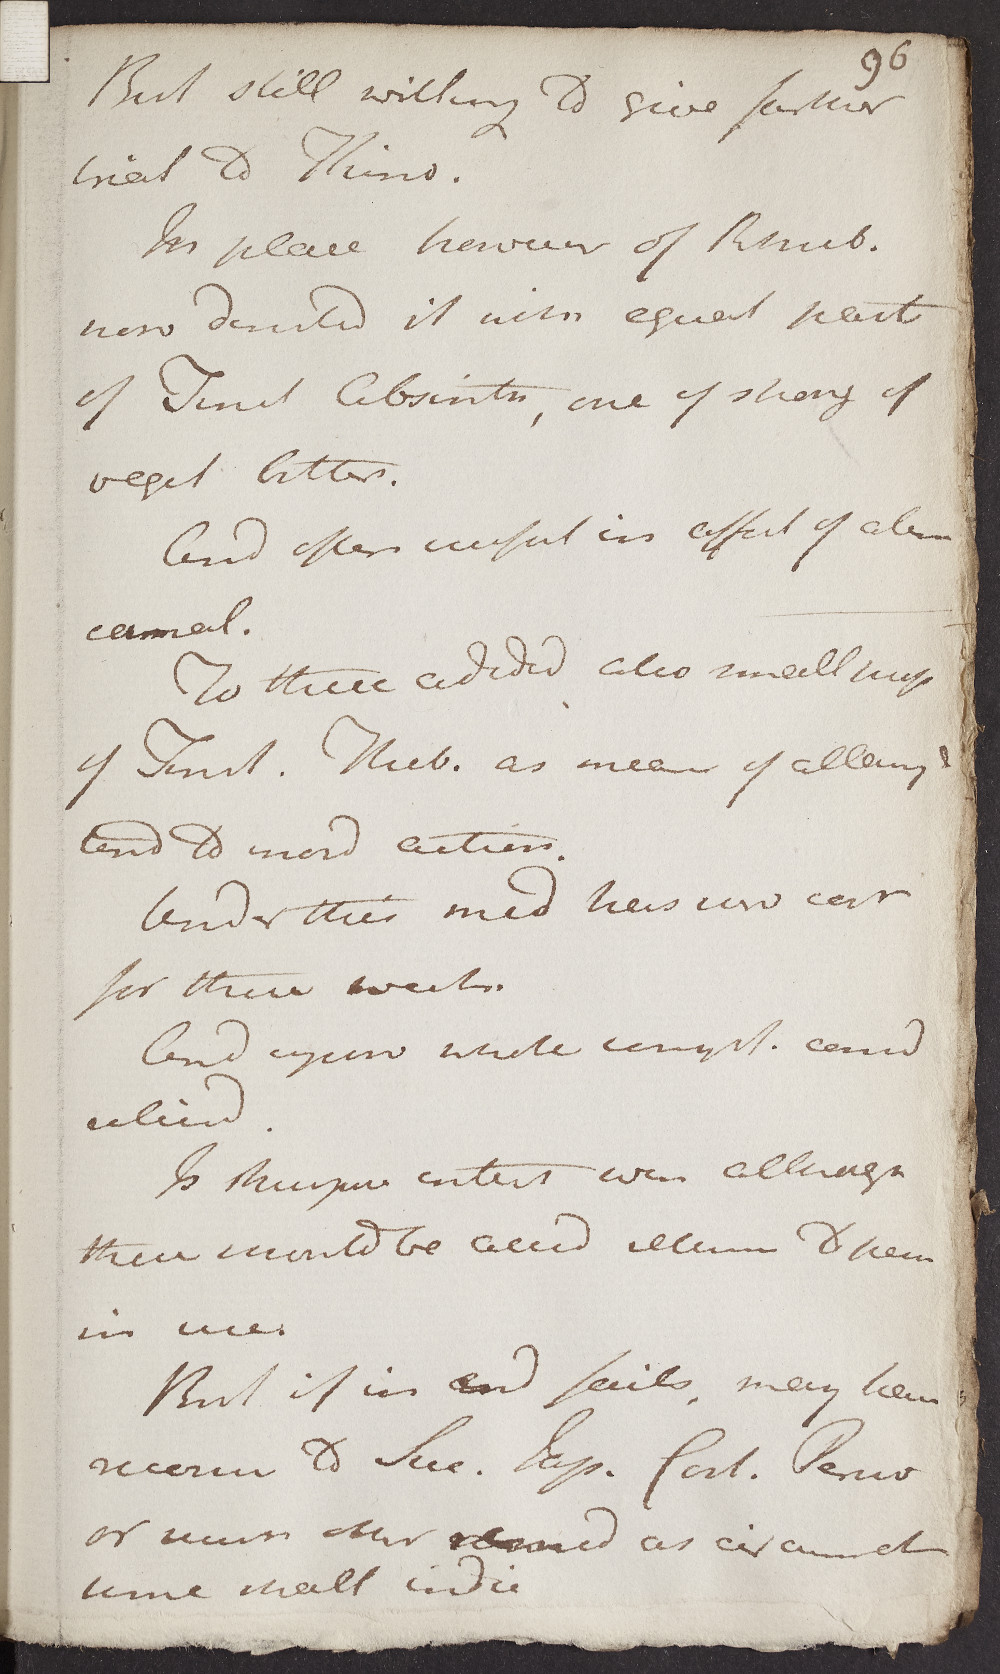 96
But still willing to give further
trial to Thino.
In place however of Rhub.
now directed it with equal part
of Tinct Absinth, one of strong of
veget bitters.
And often useful in affect of alem
canal.
To these added also small
of Tinct. Theb. as mean of allayg
tend to mord action.
Under this med has now cont
for three weeks.
And upon whole compt. cons
reliev
In present state even although
there should be cons return to pen
in use.
But if in end fails, may have
recour to Suc. Jap. Cort. Peruv
or such other remed as circumst
time shall indic